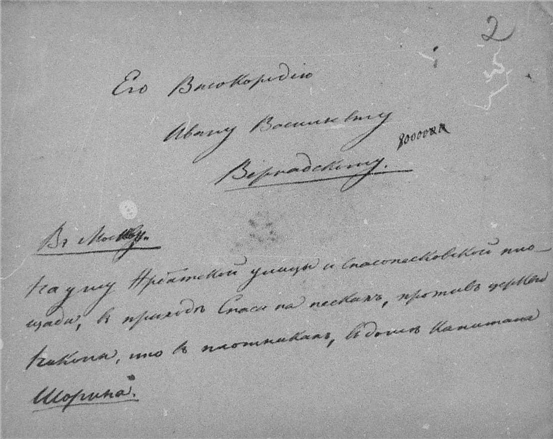 2
Его Высокородію
Ивану Васильевичу
Вернадскому.
Въ Москву.
На углу Арбатской улицы и Спасопесковской пло-
щади, въ приходѣ Спаса на пескахъ, противъ церкви
Николы, что въ плотникахъ, въ домѣ Капитана
Шорина.